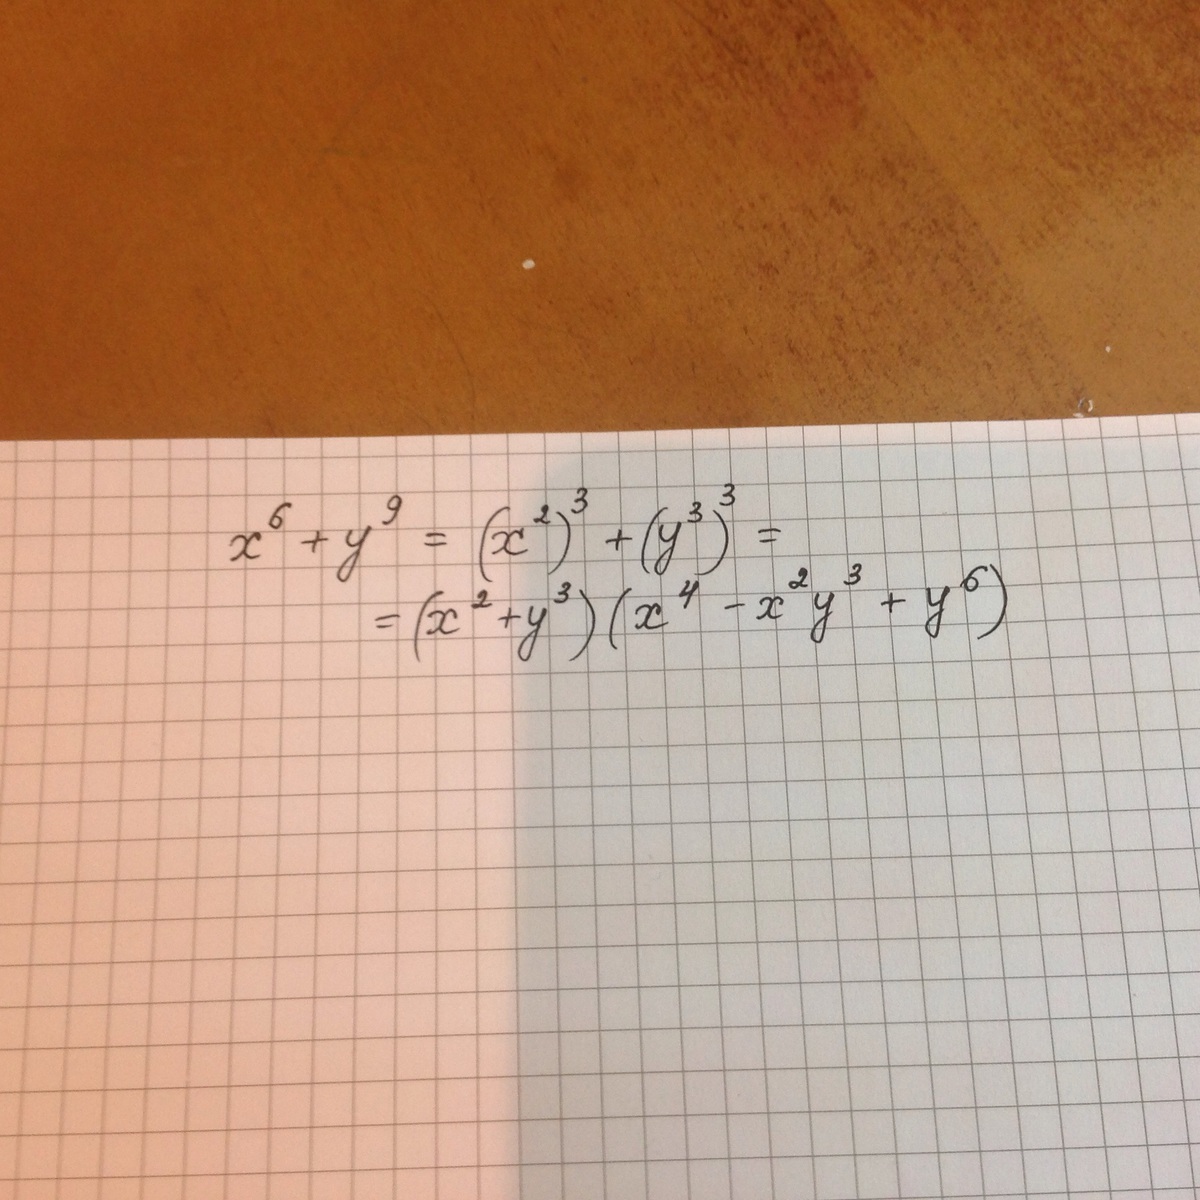 x⁶ + y⁹ = (x²)³ + (y³)³ =
= (x² + y³)(x⁴ - x²y³ + y⁶)